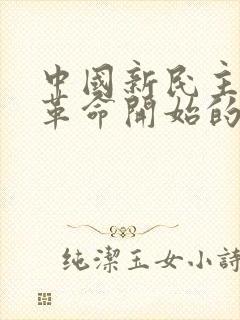 中國新民主
革命開始的
纯潔玉女小詩